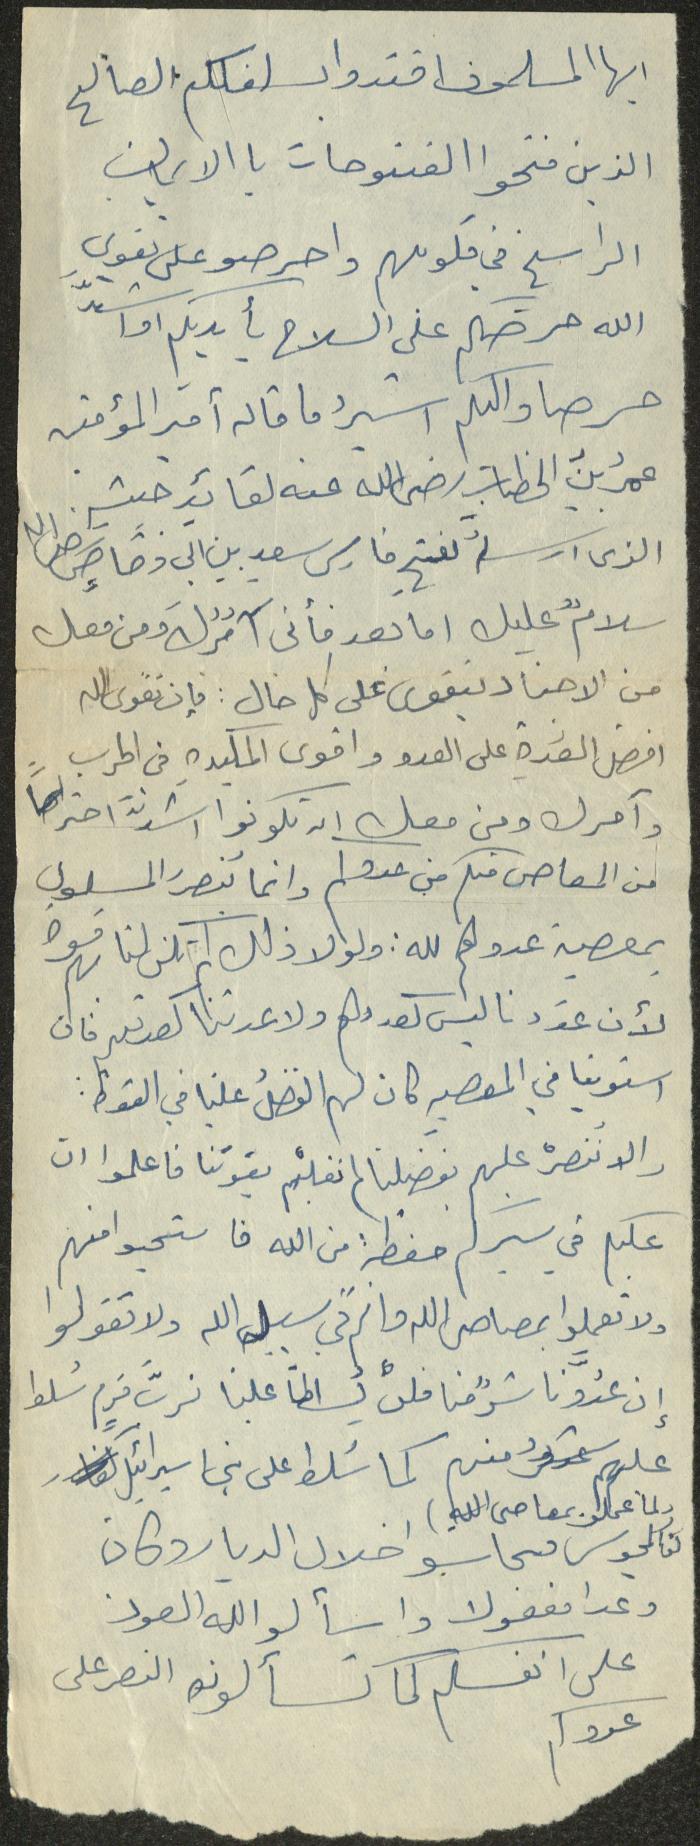 ايها المسلمون اقتدوا بسلفكم الصالح
الذين فتحوا الفتوحات باالايمان
الراسخ في قلوبهم واحرصو على تقوى
الله حرصكم على السلاح بأيديكم او اشدَّ
حرصا واليكم اشيرُ ما قاله أمير المؤمنين
عمرُ بنُ الخطاب رضى الله عنه لقائدِ جيشهِ
الذى ارسلهُ لفتحِ فارس سعد بن ابى وقاصٍ رضى الله
سلامٌ عليك اما بعد فأنى آمُرُكَ ومن معك
من الاجناد بتقوى على كل حال : فإن تقوى الله
افضل العُدة على العدو واقوى المكيدهِ فى الحرب
وآمرك ومن معك ان تكونوا اشد احتراساً
من المعاصى منكم من عدوكم وانما يُنصر المسلمون
بمعصية عدوهم لله : ولولا ذلك لم تكن لنا بهم قوةٌ
لأن عددنا ليس كعددهم ولا عدتنا كعدتهم فان
استوينا في المعصيهِ كان لهم الفضلُ علينا في القوة :
والا نُنصرْ عليهم بفضلنا لم نغلبْهم بقوتنا فاعلموا ان
عليكم في سيركم حفظةً من الله فاستحيوا منهم
ولا تعملوا بمعاصى الله وانتم في سبيل الله ولا تقولوا
إن عدُوَّنا شرٌ منا فلنْ يُسلطَ علينا فربَّ قومٍ سُلط
عليهم شرٌ منهم كما سُلط على بنى اسرائيل
لما عملو بمعاصى الله )
كفار المجوس فجاسوا خلال الديار وكان
وعدا مفعولا واسألو الله العون
على انفسكم كما تسألونه النصر على
عدوكم